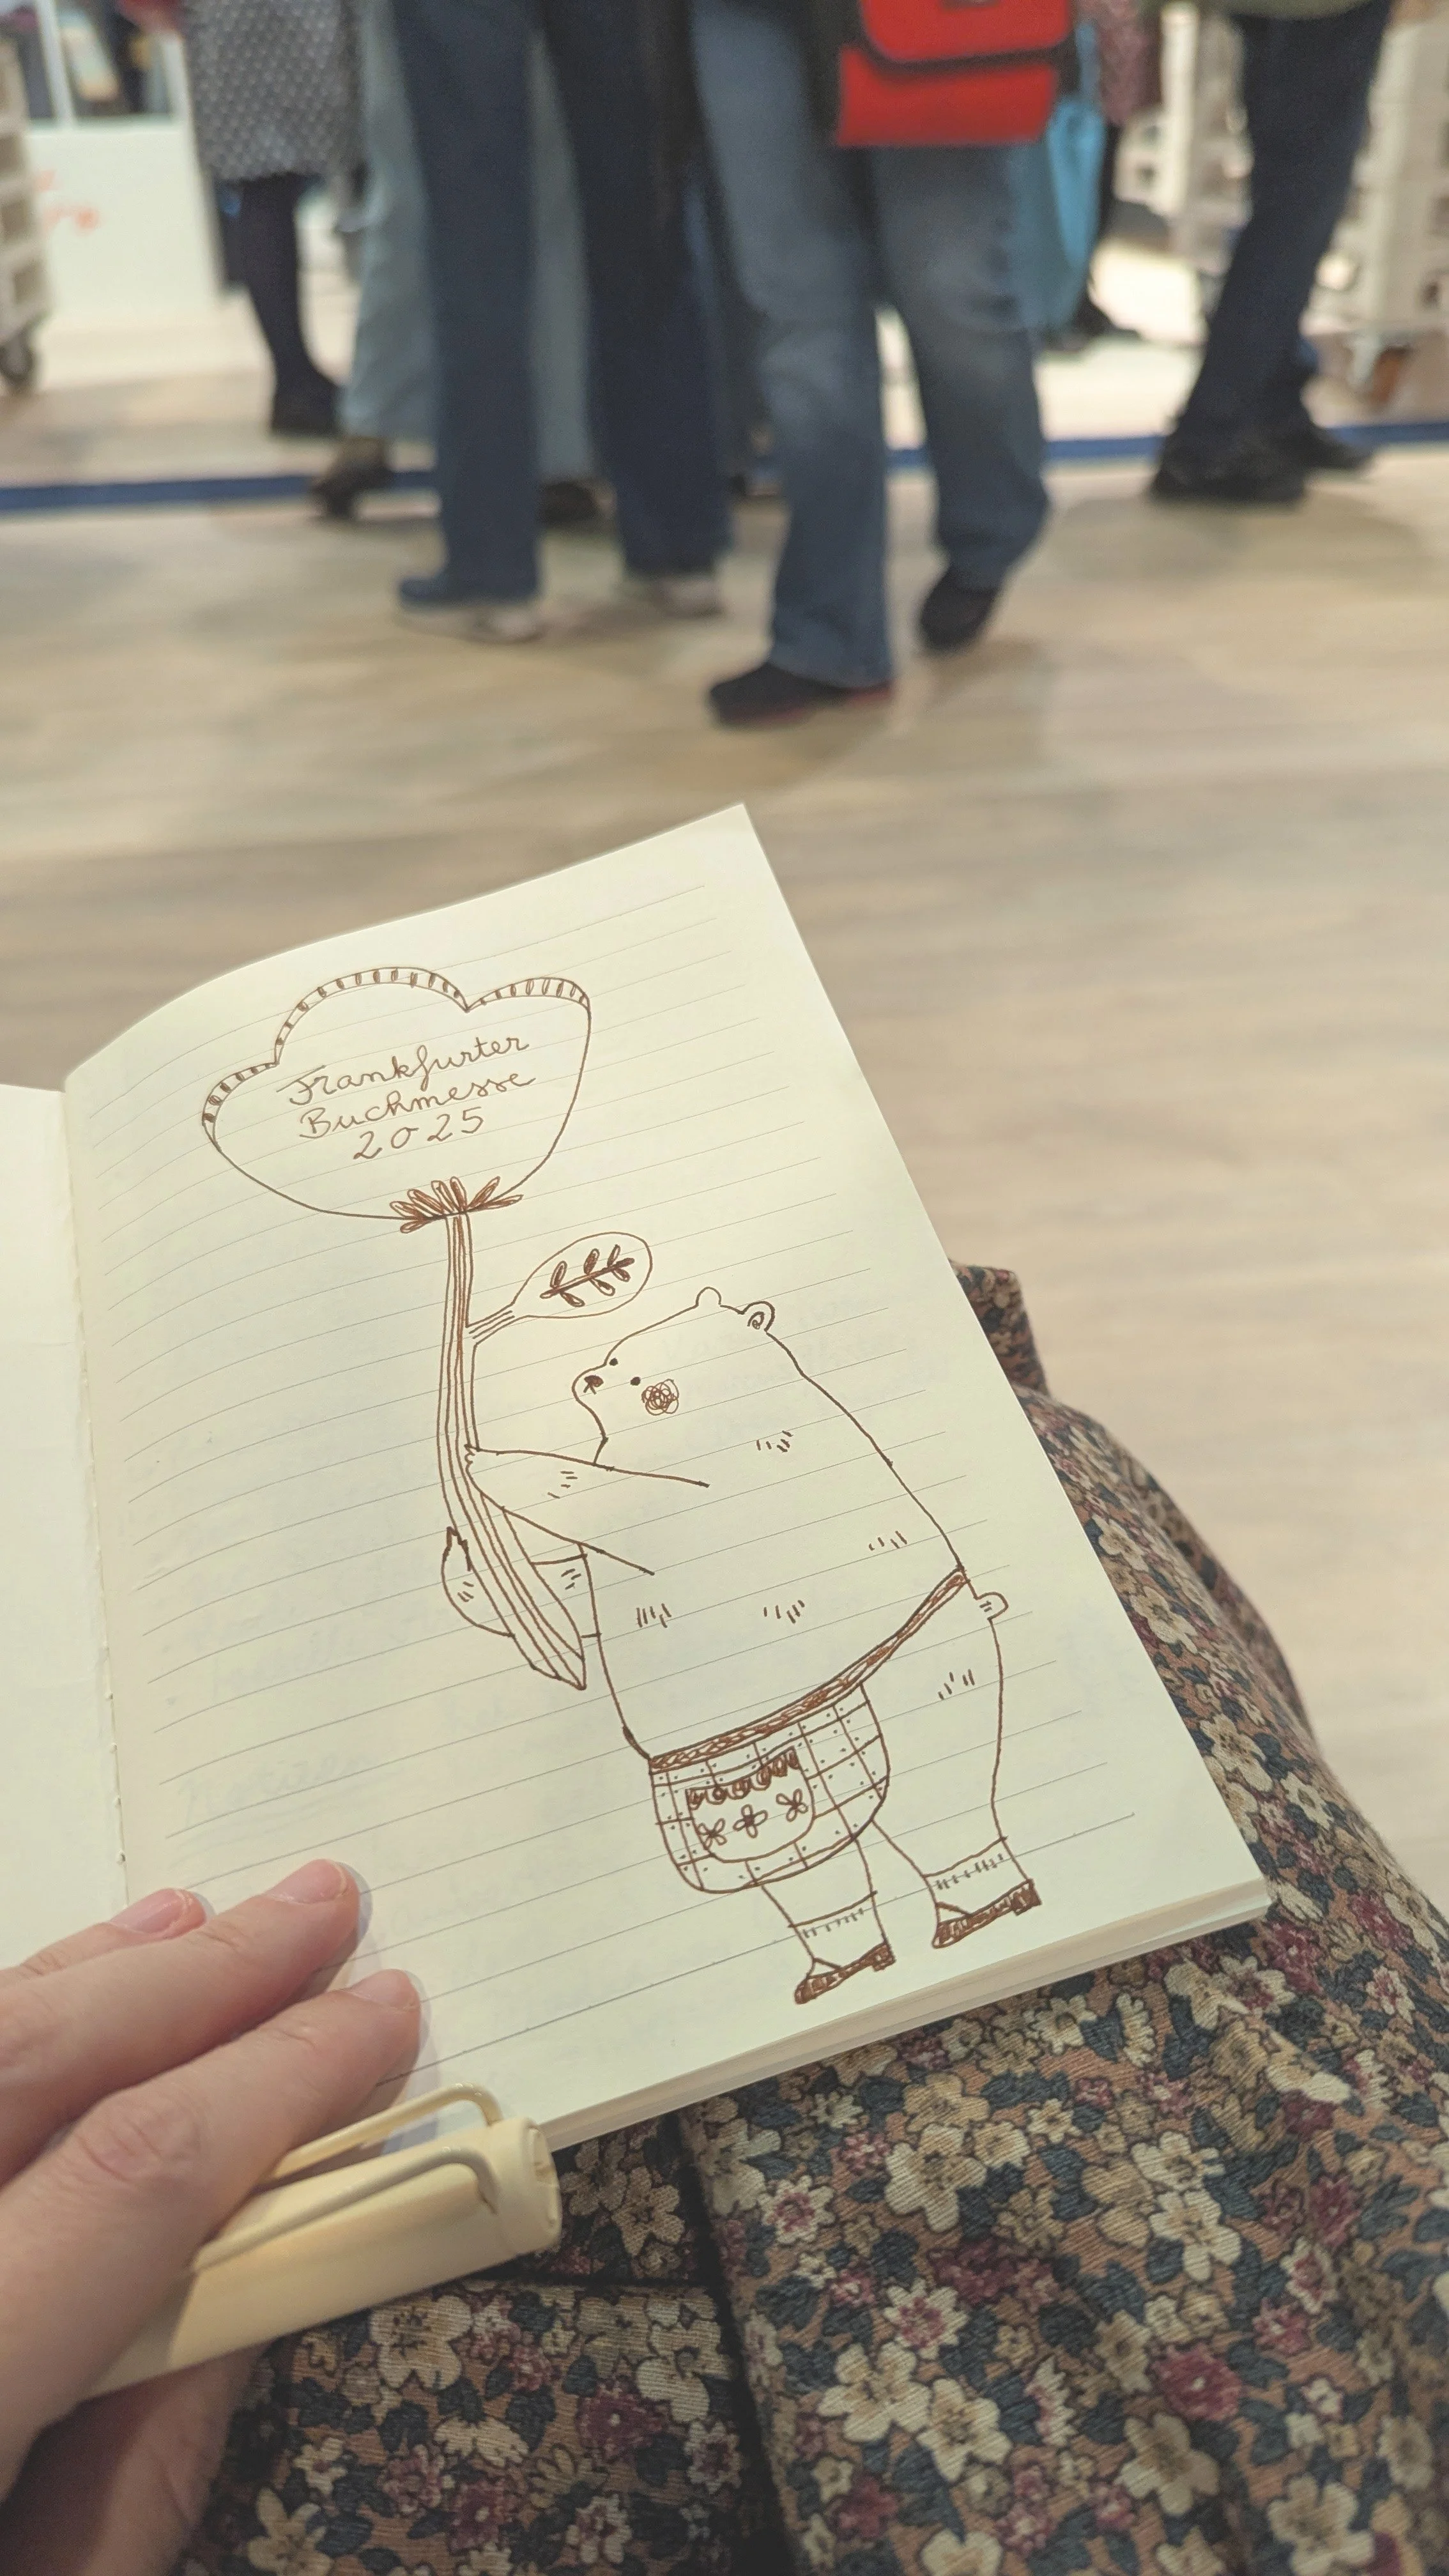 Frankfurter
Buchmesse
2025